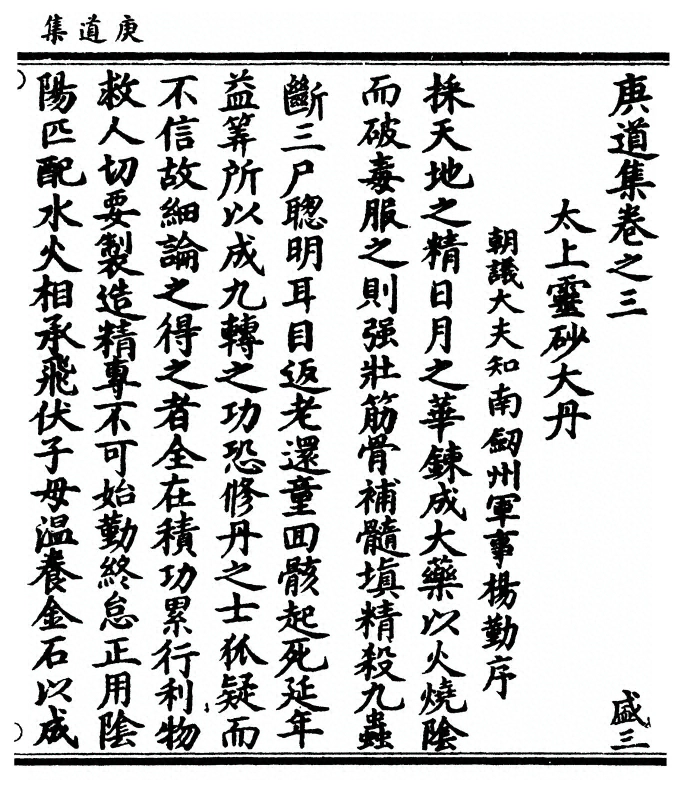 庚道集
庚道集卷之三
盛三
太上靈砂大丹
朝議大夫知南劒州軍事楊勤序
採天地之精日月之華鍊成大藥以火燒陰
而破毒服之則强壯筋骨補髓塡精殺九蟲
斷三尸聰明耳目返老還童囬骸起死延年
益筭所以成九轉之功恐修丹之士狐疑而
不信故細論之得之者全在積功累行利物
救人切要製造精專不可始勤終怠正用陰
陽匹配水火相承飛伏子母温養金石以成